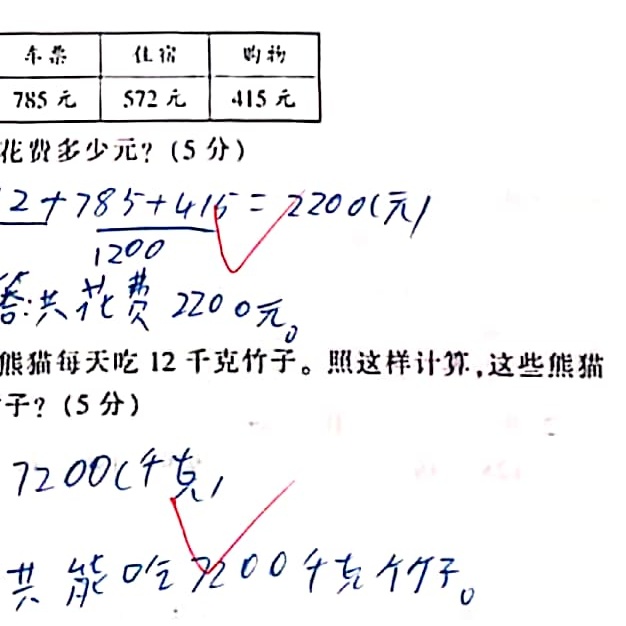 车票 住宿 购物
785元 572元 415元
花费多少元？(5分)
2+785+415=2200(元)
1200
答:共花费2200元。
熊猫每天吃12千克竹子。照这样计算,这些熊猫
子？(5分)
7200(千克)
共能吃7200千克竹子。